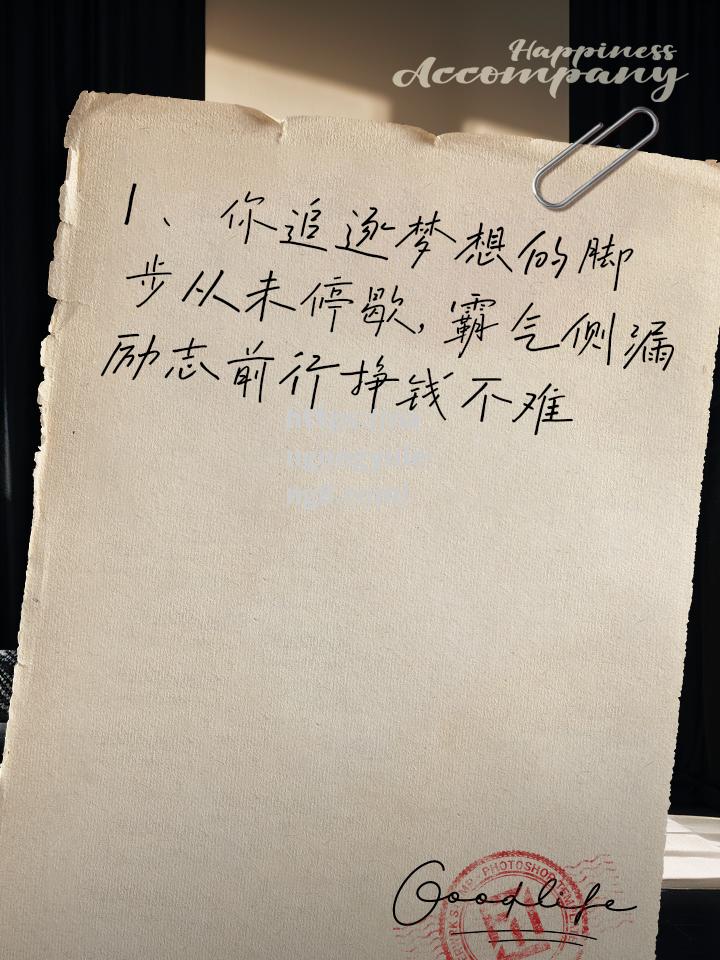 Happiness
Accompany
1、你追逐梦想的脚
步从未停歇，霸气侧漏
励志前行挣钱不难
Goodlife
PHOTOSHOP